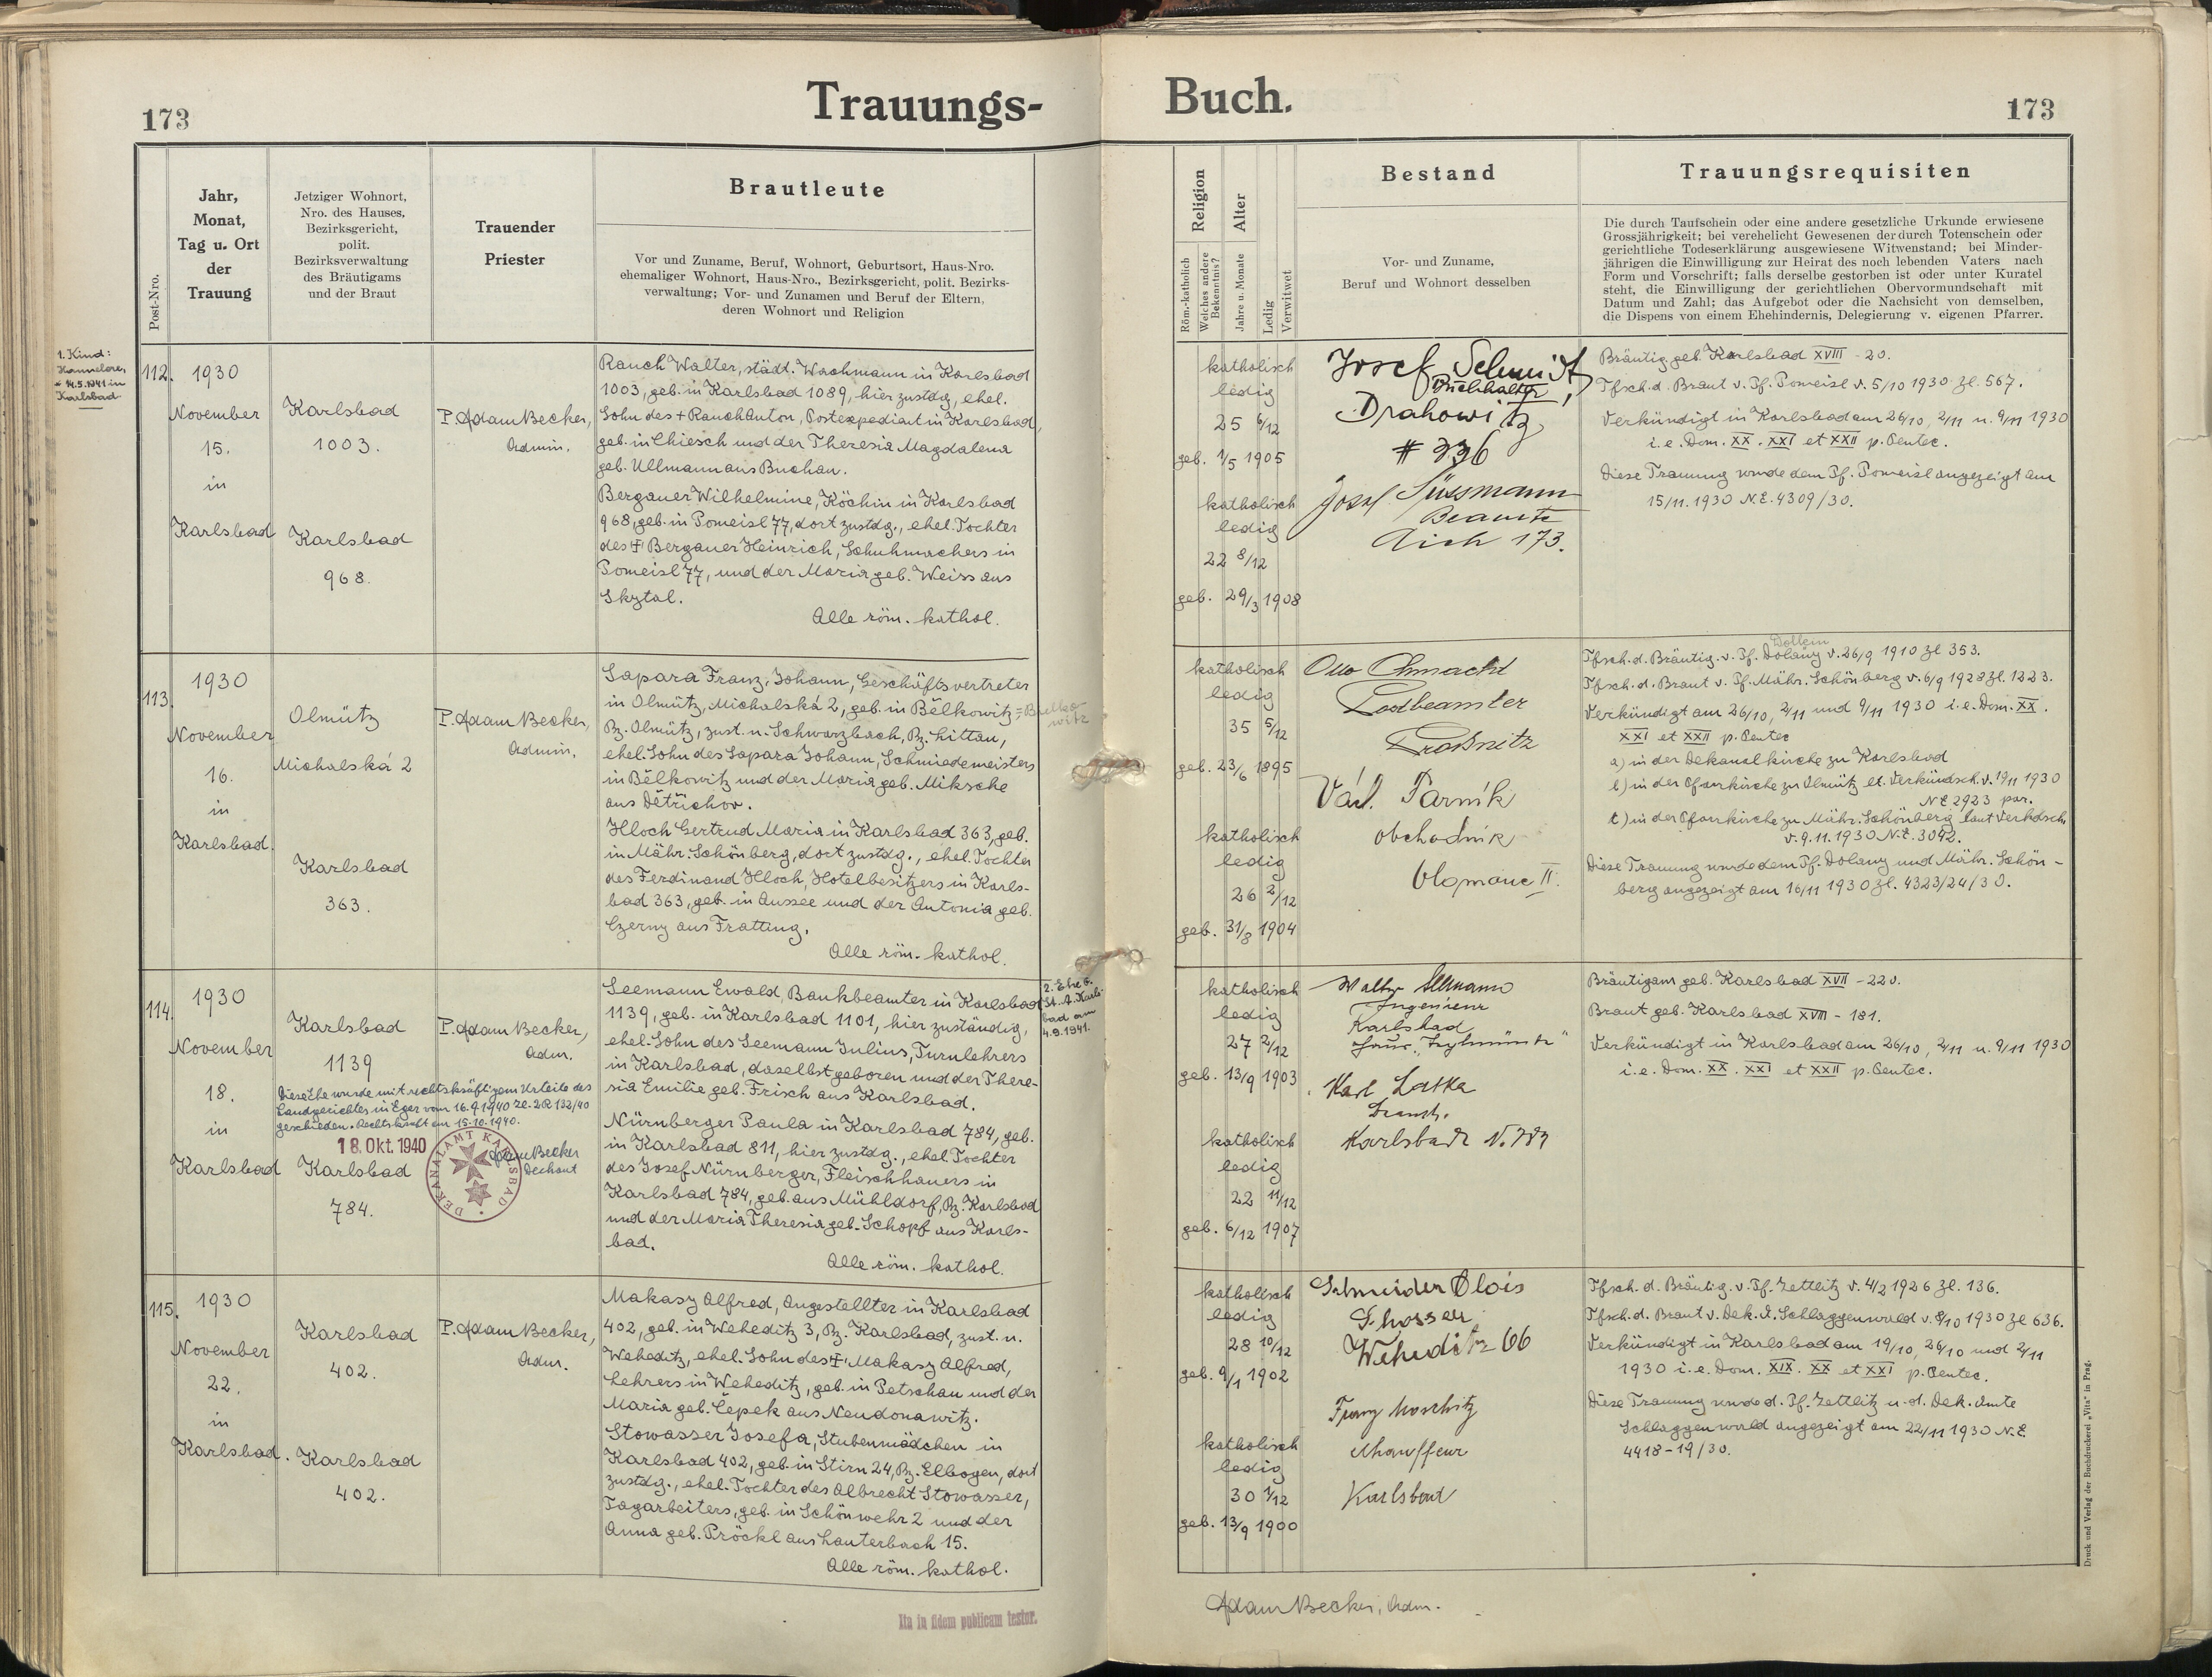 173
Trauungs-
Buch.
173
Post-Nro.
Jahr,
Monat,
Tag u. Ort
der
Trauung
Jetziger Wohnort,
Nro. des Hauses,
Bezirksgericht,
polit.
Bezirksverwaltung
des Bräutigams
und der Braut
Trauender
Priester
Brautleute
Vor und Zuname, Beruf, Wohnort, Geburtsort, Haus-Nro.
ehemaliger Wohnort, Haus-Nro., Bezirksgericht, polit. Bezirks-
verwaltung; Vor- und Zunamen und Beruf der Eltern,
deren Wohnort und Religion
Religion
Röm.-katholisch
Welches andere
Bekenntnis?
Alter
Jahre u. Monate
Ledig
Verwitwet
Bestand
Vor- und Zuname,
Beruf und Wohnort desselben
Trauungsrequisiten
Die durch Taufschein oder eine andere gesetzliche Urkunde erwiesene
Grossjährigkeit; bei verehelicht Gewesenen der durch Totenschein oder
gerichtliche Todeserklärung ausgewiesene Witwenstand; bei Minder-
jährigen die Einwilligung zur Heirat des noch lebenden Vaters nach
Form und Vorschrift; falls derselbe gestorben ist oder unter Kuratel
steht, die Einwilligung der gerichtlichen Obervormundschaft mit
Datum und Zahl; das Aufgebot oder die Nachsicht von demselben,
die Dispens von einem Ehehindernis, Delegierung v. eigenen Pfarrer.
1. Kind:
Hannelore,
* 14.5.1941 in
Karlsbad
112.
1930
November
15.
in
Karlsbad
Karlsbad
1003.
Karlsbad
968.
P. Adam Becker,
Admin.
Rauch Walter, städt. Wachmann in Karlsbad
1003, geb. in Karlsbad 1089, hier zustdg, ehel.
Sohn des + Rauch Anton, Postexpedient in Karlsbad,
geb. in Chiesch und der Theresia Magdalena
geb. Ullmann aus Buchau.
Bergauer Wilhelmine, Köchin in Karlsbad
968, geb. in Pomeisl 77, dort zustdg., ehel. Tochter
des + Bergauer Heinrich, Schuhmachers in
Pomeisl 77, und der Maria geb. Weiss aus
Skytal.
Alle röm. kathol.
katholisch
ledig
25 6/12
geb. 1/5 1905
katholisch
ledig
22 8/12
geb. 29/3 1908
Josef Schmidt
Buchhalter,
Drahowitz
# 236
Josef Süssmann
Beamte
Aich 173.
Bräutig. geb. Karlsbad XVIII - 20.
Tfsch. d. Braut v. Pf. Pomeisl v. 5/10 1930 Zl. 567.
Verkündigt in Karlsbad am 26/10, 2/11 u. 9/11 1930
i. e. Dom. XX. XXI et XXII p. Pentec.
Diese Trauung wurde dem Pf. Pomeisl angezeigt am
15/11. 1930 N.E. 4309/30.
113.
1930
November
16.
in
Karlsbad.
Olmütz
Michalská 2
Karlsbad
363.
P. Adam Becker,
Admin.
Sapara Franz, Johann, Geschäftsvertreter
in Olmütz, Michalská 2, geb. in Bělkowitz = Bielko-
witz
Bz. Olmütz, zust. n. Schwarzbach, Bz. Littau,
ehel. Sohn des Sapara Johann, Schmiedemeisters
in Bělkowitz und der Maria geb. Miksche
aus Dětřichov.
Hloch Gertrud Maria in Karlsbad 363, geb.
in Mähr. Schönberg, dort zustdg., ehel. Tochter
des Ferdinand Hloch, Hotelbesitzers in Karls-
bad 363, geb. in Aussee und der Antonia geb.
Czerny aus Fratting.
Alle röm. kathol.
katholisch
ledig
35 5/12
geb. 23/6 1895
katholisch
ledig
26 2/12
geb. 31/8 1904
Otto Ohnacht
Proßnitz
Parník
obchodník
Olomouc II.
Dollein
Tfsch. d. Bräutig. v. Pf. Dolany v. 26/9 1910 Zl 353.
Tfsch. d. Braut v. Pf. Mähr. Schönberg v. 6/9 1928 Zl. 1223.
Verkündigt am 26/10, 2/11 und 9/11 1930 i. e. Dom. XX.
XXI et XXII p. Pentec
a) in der Dekanalkirche zu Karlsbad
b) in der Pfarrkirche zu Olmütz lt. Verkündsch. v. 19/11 1930
N.E 2923 par.
c) in der Pfarrkirche zu Mähr. Schönberg laut Verkdsch.
v. 9.11.1930 N.E. 3092.
Diese Trauung wurde dem Pf. Dolany und Mähr. Schön-
berg angezeigt am 16/11 1930 Zl. 4323/24/30.
114.
1930
November
18.
in
Karlsbad
Karlsbad
1139
Diese Ehe wurde mit rechtskräftigem Urteile des
Landgerichtes in Eger vom 16.9.1940 Zl. 2R 132/40
geschieden. Rechtskraft am 15.10.1940.
18. Okt. 1940
Adam Becker
Dechant
DEKANALAMT KARLSBAD
Karlsbad
784.
P. Adam Becker,
Adm.
Seemann Ewald, Bankbeamter in Karlsbad
1139, geb. in Karlsbad 1101, hier zuständig,
ehel. Sohn des Seemann Julius, Turnlehrers
in Karlsbad, daselbst geboren und der There-
sia Emilie geb. Frisch aus Karlsbad.
Nürnberger Paula in Karlsbad 784, geb.
in Karlsbad 811, hier zustdg., ehel. Tochter
des Josef Nürnberger, Fleischhauers in
Karlsbad 784, geb. aus Mühldorf, Bz. Karlsbad
und der Maria Theresia geb. Schopf aus Karls-
bad.
Alle röm. kathol.
2. Ehe b.
St. A. Karls-
bad am
4.9.1941.
katholisch
ledig
27 2/12
geb. 13/9 1903
katholisch
ledig
22 11/12
geb. 6/12 1907
Walter
Ingenieur
Karlsbad
Karl Latka
Karlsbad N.
Bräutigam geb. Karlsbad XVII - 220.
Braut geb. Karlsbad XVIII - 181.
Verkündigt in Karlsbad am 26/10, 2/11 u. 9/11 1930
i. e. Dom. XX. XXI et XXII p. Pentec.
115.
1930
November
22.
in
Karlsbad.
Karlsbad
402.
Karlsbad
402.
P. Adam Becker,
Adm.
Makasy Alfred, Angestellter in Karlsbad
402, geb. in Weheditz 3, Bz. Karlsbad, zust. n.
Weheditz, ehel. Sohn des + Makasy Alfred,
Lehrers in Weheditz, geb. in Petschau und der
Maria geb. Čepek aus Neudonawitz.
Stowasser Josefa, Stubenmädchen in
Karlsbad 402, geb. in Stirn 24, Bz. Elbogen, dort
zustdg., ehel. Tochter des Albrecht Stowasser,
Tagarbeiters, geb. in Schönwehr 2 und der
Anna geb. Pröckl aus Lauterbach 15.
Alle röm. kathol.
katholisch
ledig
28 10/12
geb. 9/1 1902
katholisch
ledig
30 1/12
geb. 13/9 1900
Schneider Alois
Weheditz 66
Franz Moschitz
Chauffeur
Karlsbad
Tfsch. d. Bräutig. v. Pf. Zettlitz v. 4/2 1926 Zl. 136.
Tfsch. d. Braut v. Dek. A. Schlaggenwald v. 8/10 1930 Zl 636.
Verkündigt in Karlsbad am 19/10, 26/10 und 2/11
1930 i. e. Dom. XIX. XX et XXI p. Pentec.
Diese Trauung wurde d. Pf. Zettlitz u. d. Dek. Amte
Schlaggenwald angezeigt am 22/11 1930 N.E.
4418-19/30.
Ita in fidem publicam testor.
Adam Becker, Adm.
Druck und Verlag der Buchdruckerei „Vita“ in Prag.